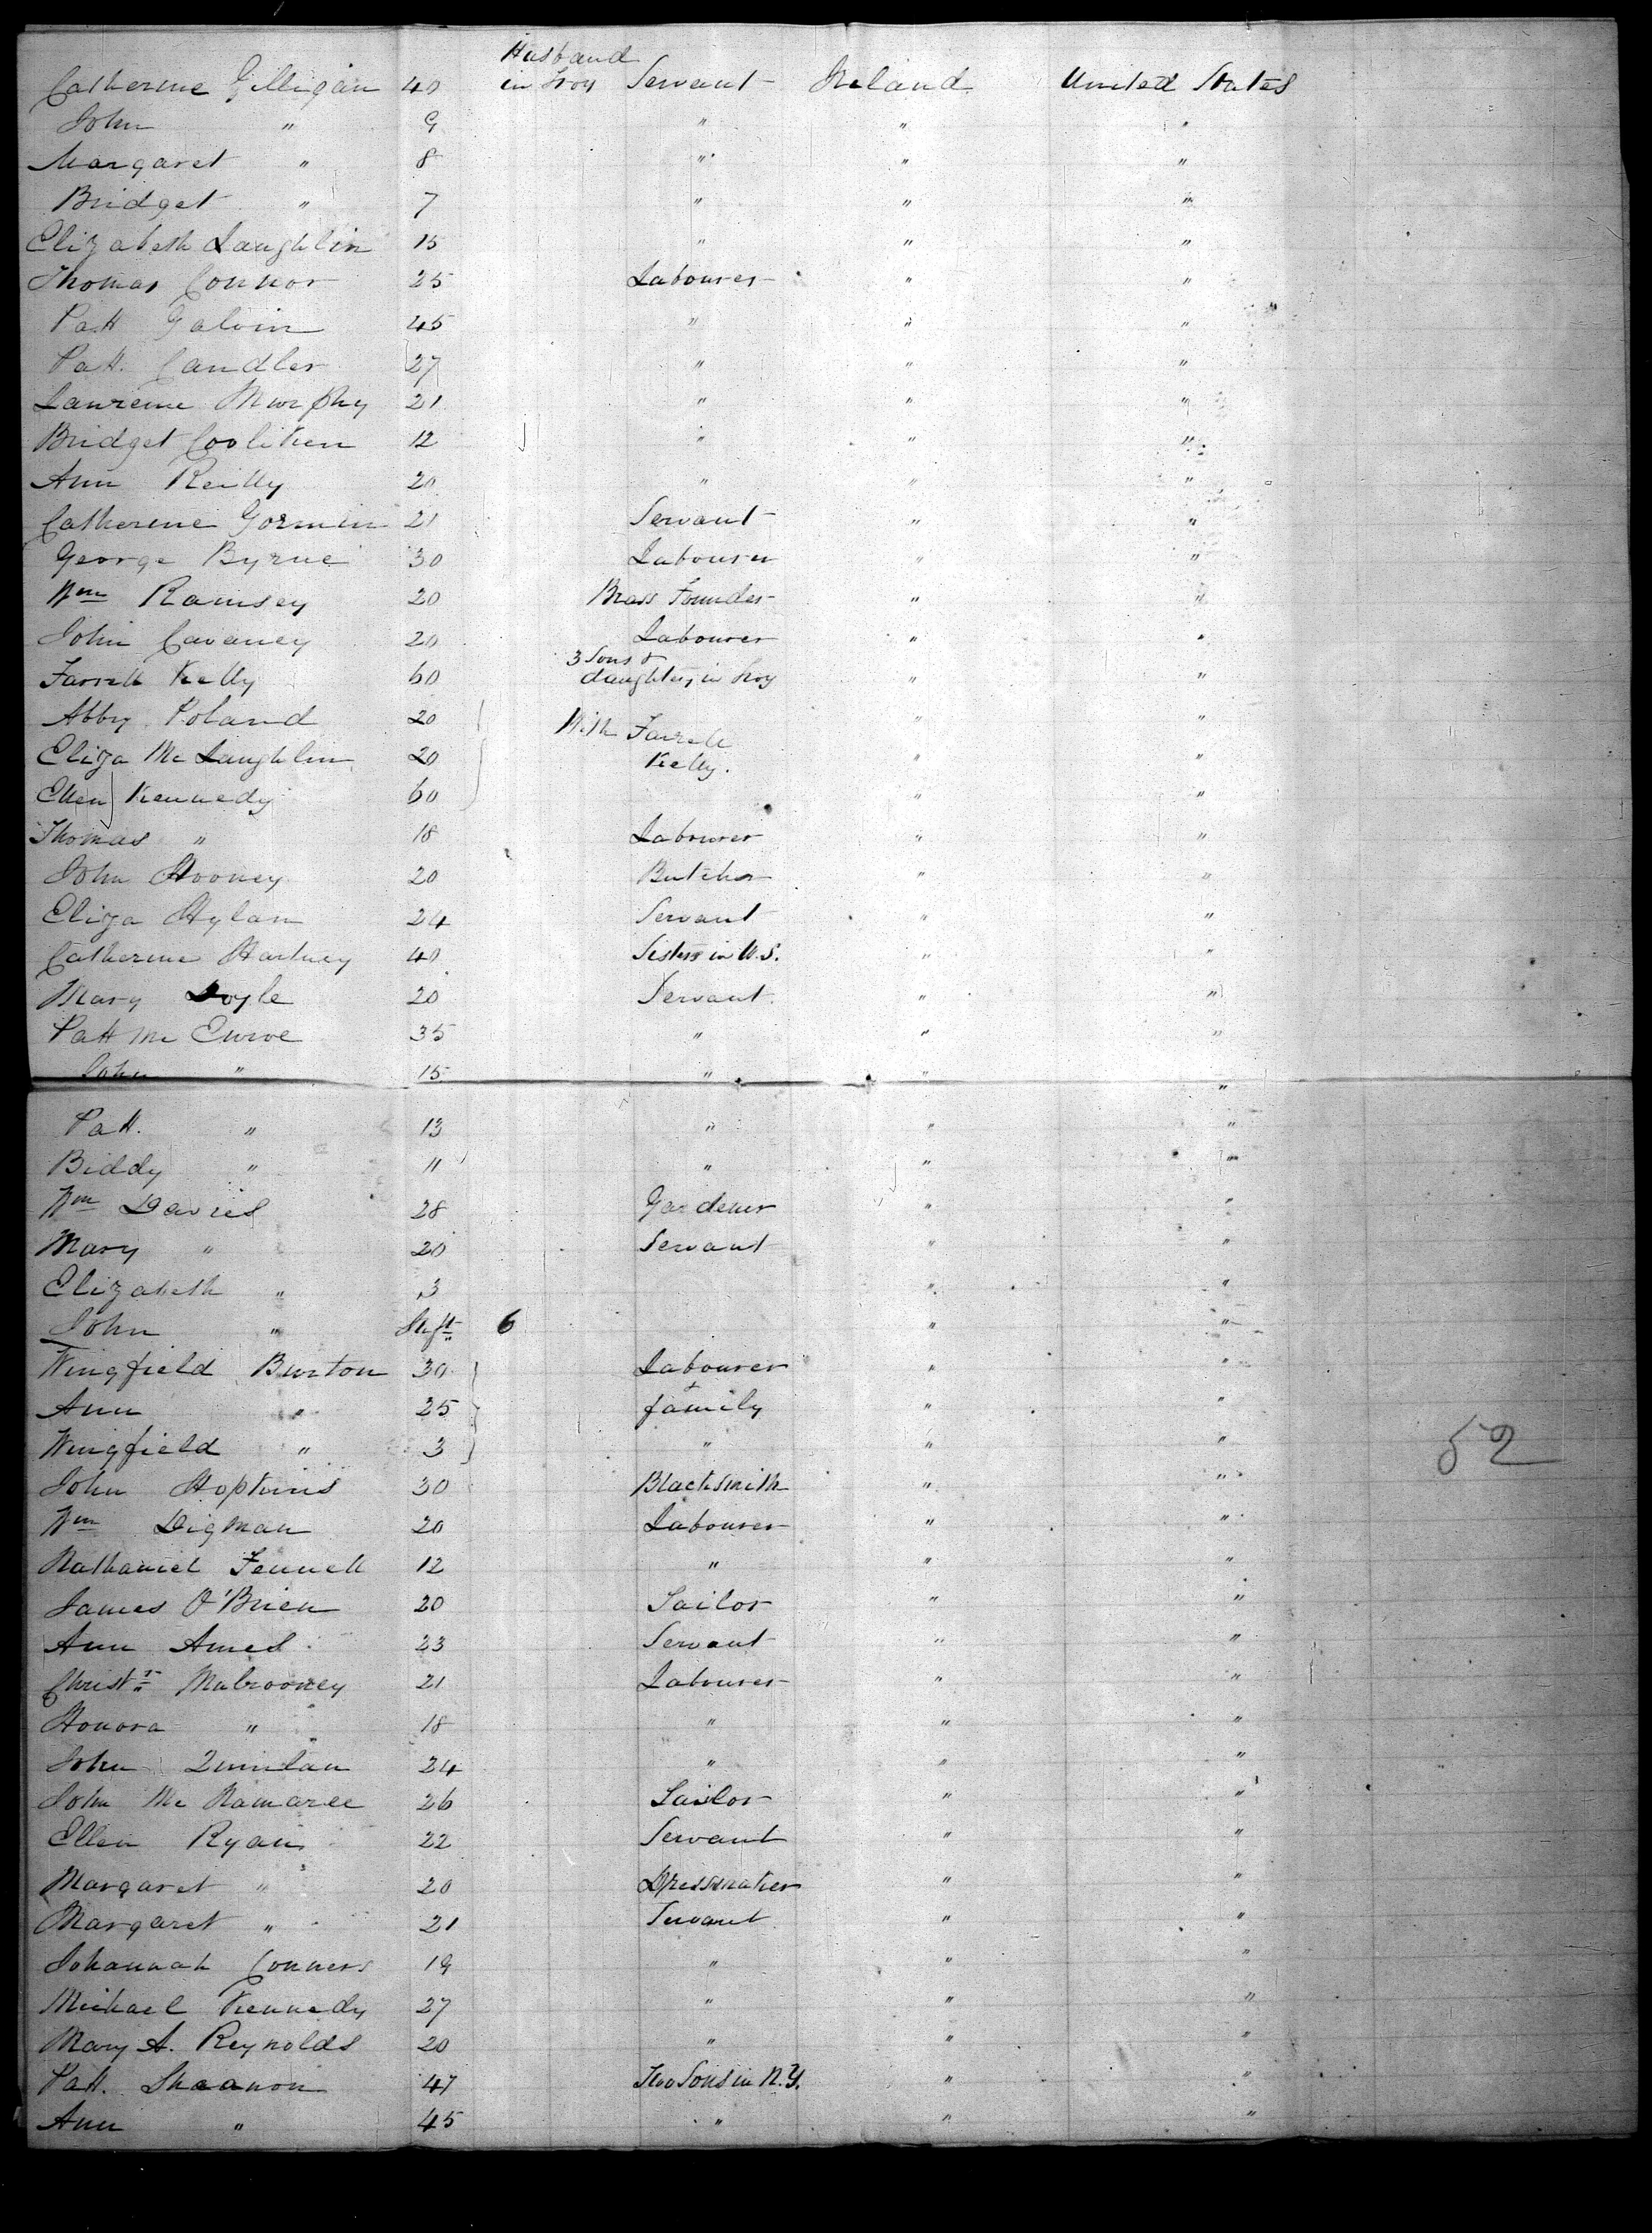 Husband
Catherine Gilligan 40 in Troy Servant Ireland United States
John " 9 " " "
Margaret " 8 " " "
Bridget " 7 " " "
Elizabeth Laughlin 15 " " "
Thomas Connor 25 Labourer " "
Patt Galvin 45 " " "
Patt. Candler 27 " " "
Laurence Murphy 21 " " "
Bridget 12 " " "
Ann Reilly 20 " " "
Catherine Gormin 21 Servant " "
George Byrne 30 Labourer " "
Wm Ramsey 20 Brass Founder " "
John Cavaney 20 Labourer " "
3 Sons &
Farrell Kelly 60 daughters in Troy " "
Abby Poland 20 With Farrell " "
Eliza Mc Laughlin 20 Kelly. " "
Ellen Kennedy 60 " "
Thomas " 18 Labourer " "
John Hooney 20 Butcher " "
Eliza Hylan 24 Servant " "
Catherine Hartney 40 Sisters in U.S. " "
Mary Doyle 20 Servant " "
Patt Mc 35 " " "
John " 15 " " "
Patt. " 13 " " "
Biddy " 11 " " "
Wm Davies 28 Gardener " "
Mary " 20 Servant " "
Elizabeth " 3 " "
John " Inft 6 " "
Wingfield Burton 30 Labourer " "
Ann " 25 & family " "
Wingfield " 3 " " "
John Hopkins 30 Blacksmith " "
Wm Digman 20 Labourer " "
Nathaniel Fennell 12 " " "
James O'Brien 20 Sailor " "
Ann Ames 23 Servant " "
Christr Mulrooney 21 Labourer " "
Honora " 18 " " "
John Quinlan 24 " " "
John Mc Namaree 26 Sailor " "
Ellen Ryan 22 Servant " "
Margaret " 20 Dressmaker " "
Margaret " 21 Servant " "
Johannah Conners 19 " " "
Michael Kennedy 27 " " "
Mary A. Reynolds 20 " " "
Patt. Shaanon 47 Two Sons in N.Y. " "
Ann " 45 " " "
52